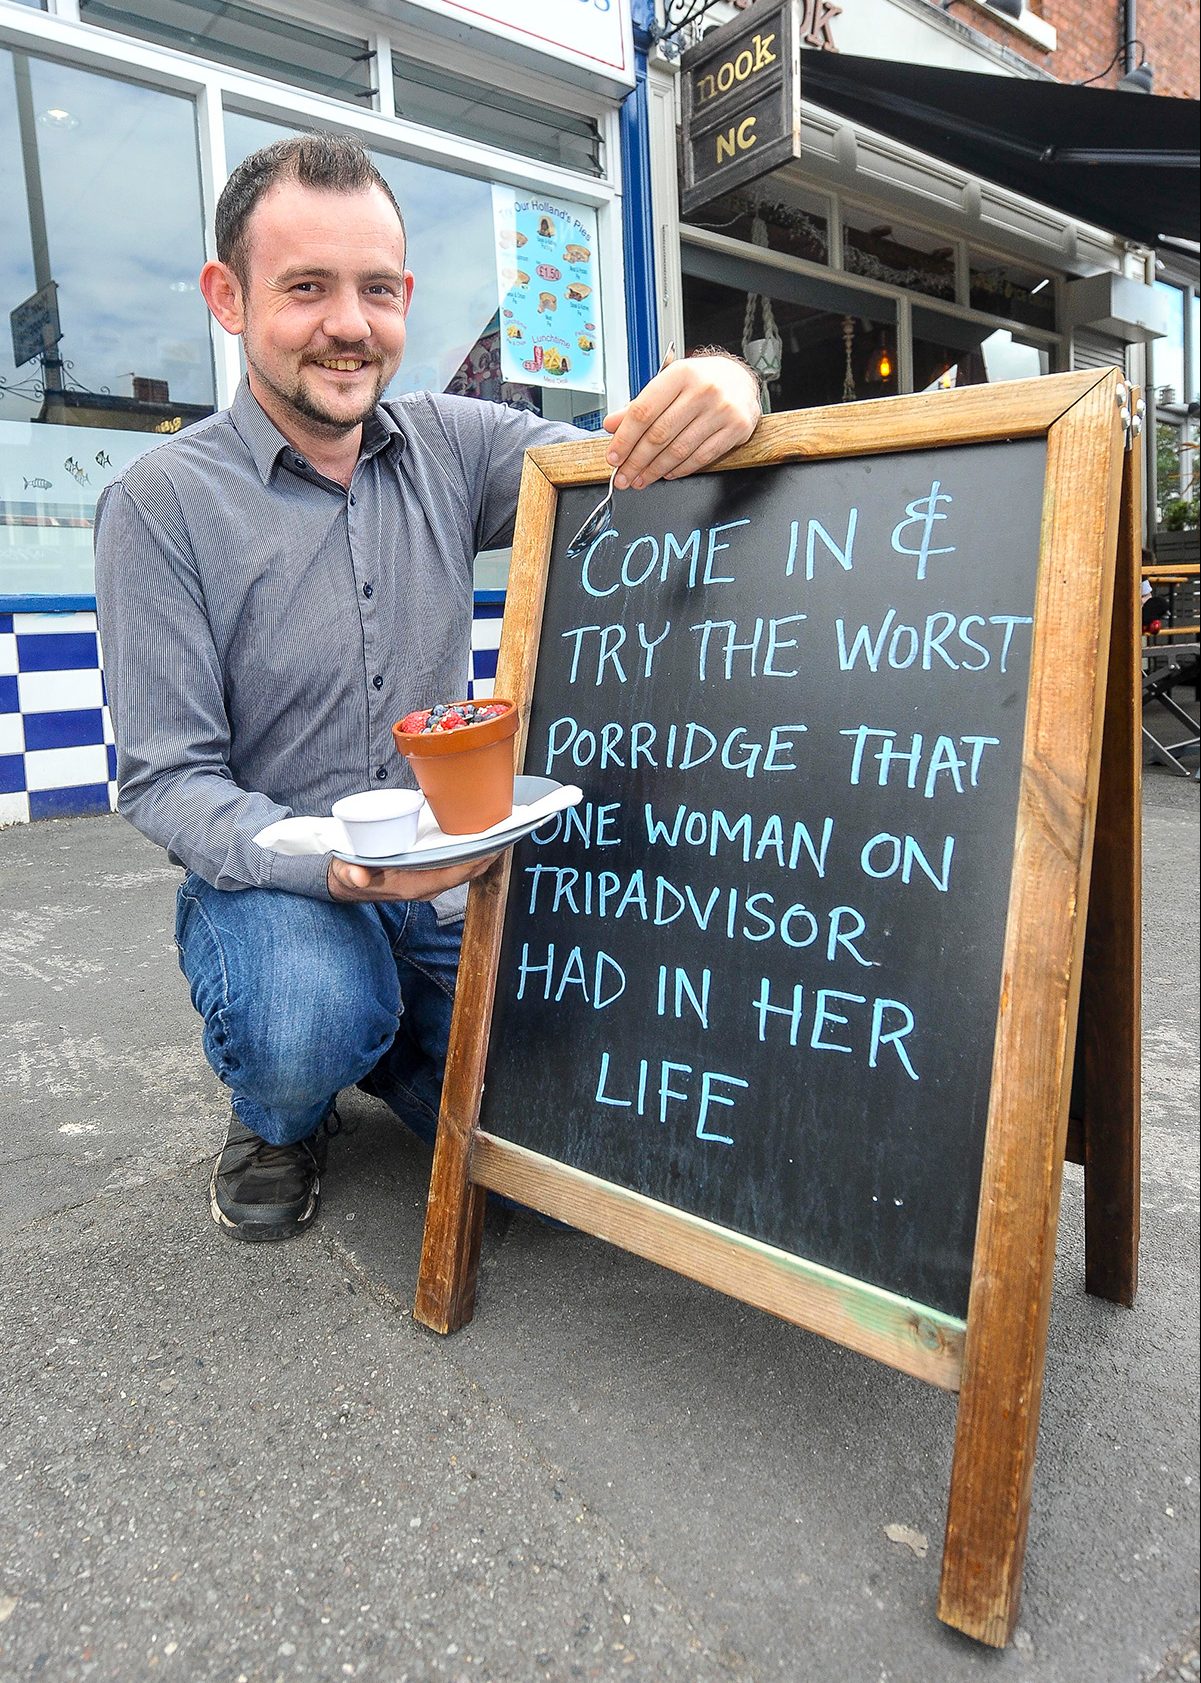 nook
NC
Our Holland's Pies
£1.50
Lunchtime
COME IN &
TRY THE WORST
PORRIDGE THAT
ONE WOMAN ON
TRIPADVISOR
HAD IN HER
LIFE